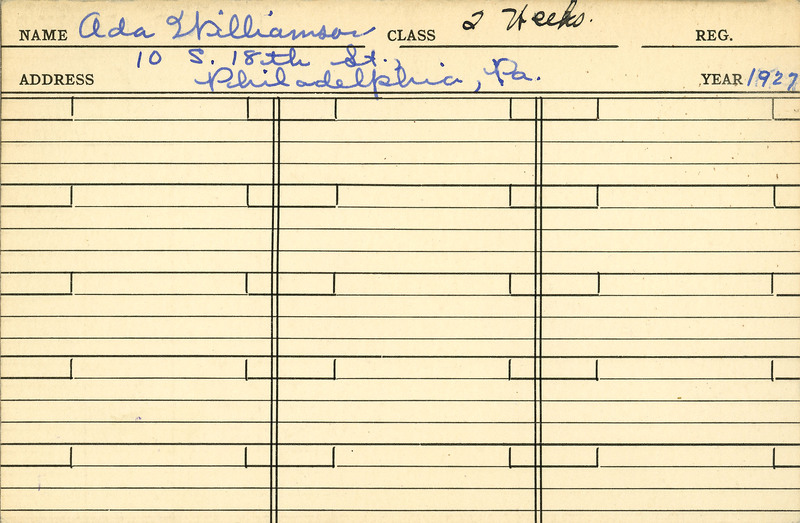 NAME Ada Williamson CLASS 2 Weeks. REG.
10 S. 18th St.,
ADDRESS Philadelphia, Pa. YEAR 1927